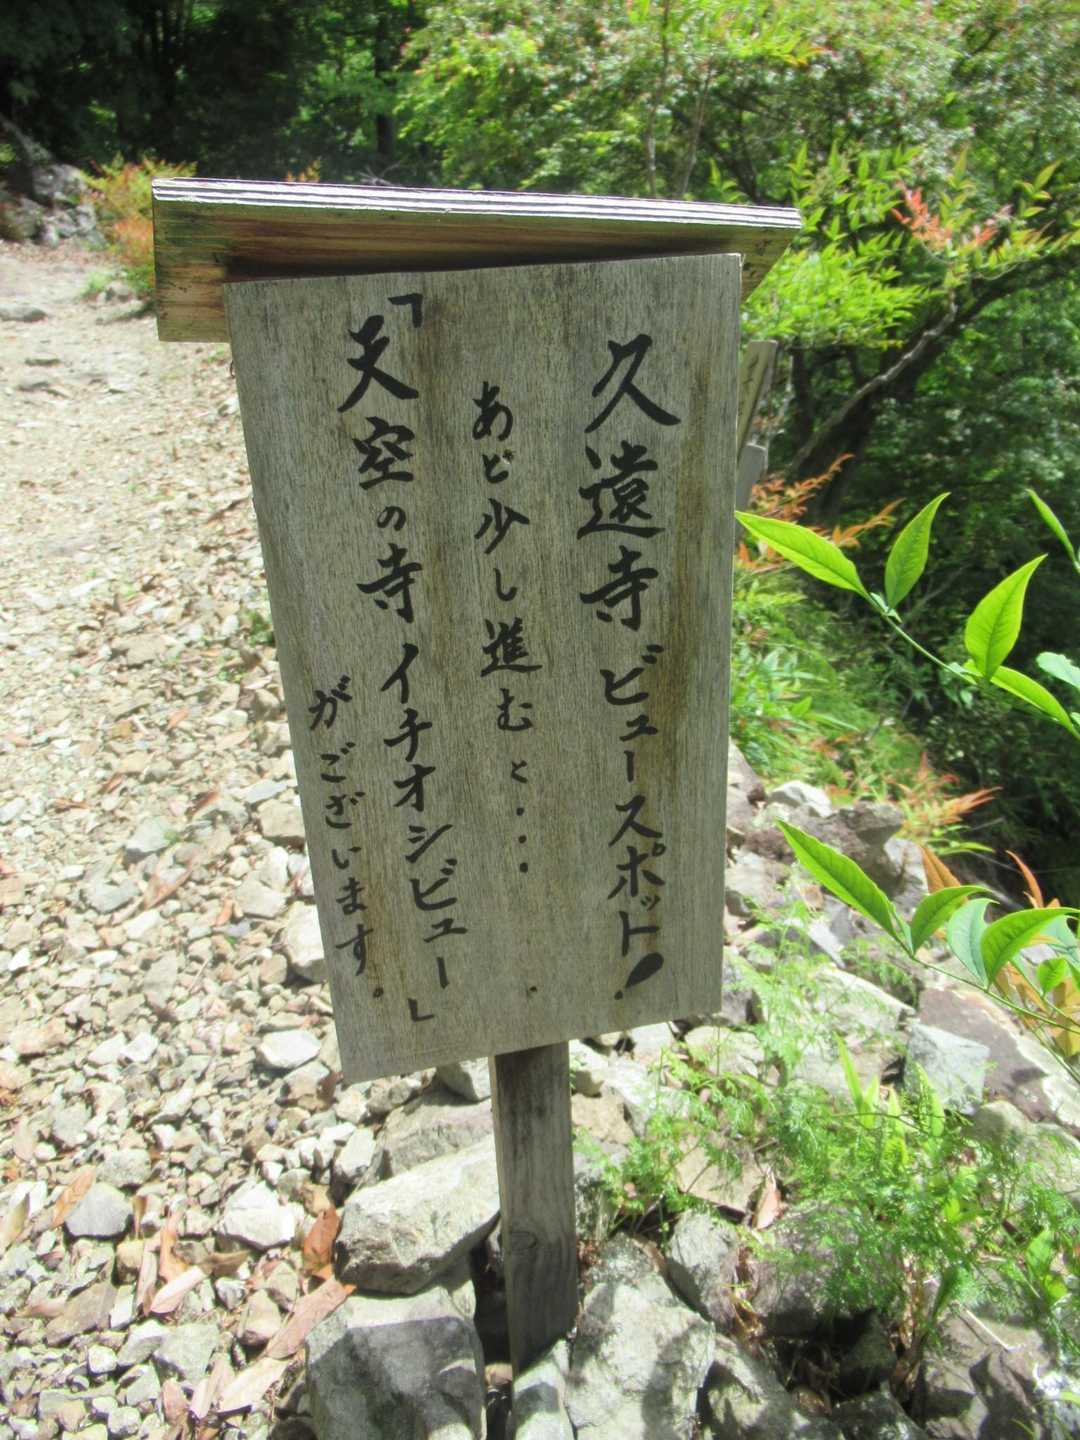 久遠寺ビュースポット!
あと少し進むと・・・
「天空の寺イチオシビュー」
がございます。